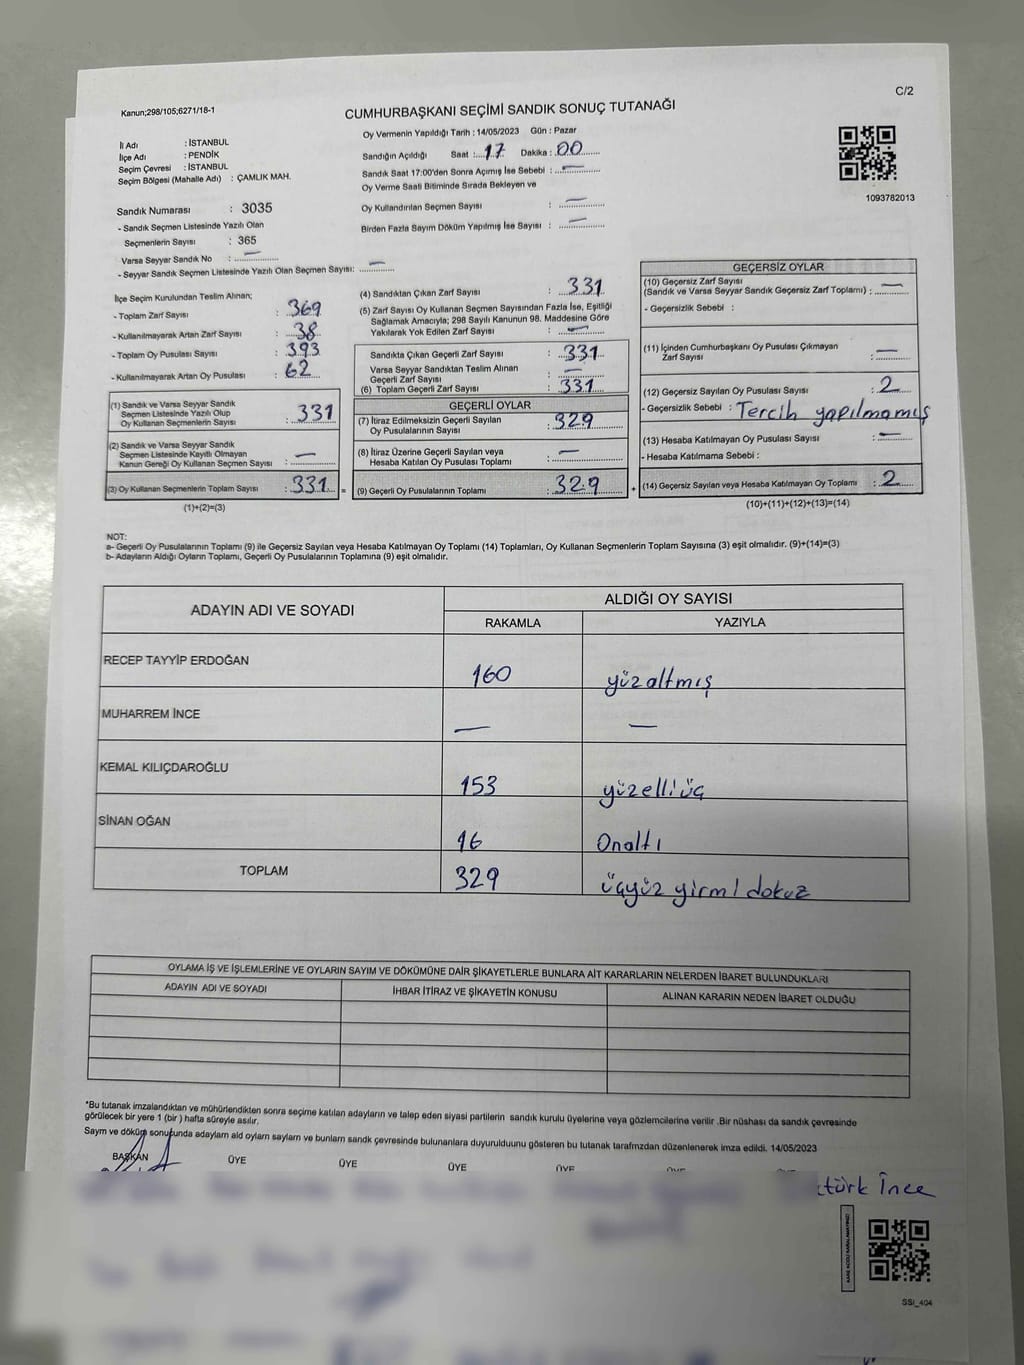 C/2
Kanun;298/105;6271/18-1
CUMHURBAŞKANI SEÇİMİ SANDIK SONUÇ TUTANAĞI
İl Adı : İSTANBUL
İlçe Adı : PENDİK
Seçim Çevresi : İSTANBUL
Seçim Bölgesi (Mahalle Adı) : ÇAMLIK MAH.
Sandık Numarası : 3035
- Sandık Seçmen Listesinde Yazılı Olan
Seçmenlerin Sayısı : 365
Varsa Seyyar Sandık No : —
- Seyyar Sandık Seçmen Listesinde Yazılı Olan Seçmen Sayısı: —
Oy Vermenin Yapıldığı Tarih : 14/05/2023 Gün : Pazar
Sandığın Açıldığı Saat : 17 Dakika : 00
Sandık Saat 17:00'den Sonra Açımış İse Sebebi : —
Oy Verme Saati Bitiminde Sırada Bekleyen ve
Oy Kullandırılan Seçmen Sayısı : —
Birden Fazla Sayım Döküm Yapılmış İse Sayısı : —
1093782013
İlçe Seçim Kurulundan Teslim Alınan;
- Toplam Zarf Sayısı : 369
- Kullanılmayarak Artan Zarf Sayısı : 38
- Toplam Oy Pusulası Sayısı : 393
- Kullanılmayarak Artan Oy Pusulası : 62
(1) Sandık ve Varsa Seyyar Sandık
Seçmen Listesinde Yazılı Olup
Oy Kullanan Seçmenlerin Sayısı : 331
(2) Sandık ve Varsa Seyyar Sandık
Seçmen Listesinde Kayıtlı Olmayan
Kanun Gereği Oy Kullanan Seçmen Sayısı : —
(3) Oy Kullanan Seçmenlerin Toplam Sayısı : 331 =
(1)+(2)=(3)
(4) Sandıktan Çıkan Zarf Sayısı : 331
(5) Zarf Sayısı Oy Kullanan Seçmen Sayısından Fazla İse, Eşitliği
Sağlamak Amacıyla; 298 Sayılı Kanunun 98. Maddesine Göre
Yakılarak Yok Edilen Zarf Sayısı : —
Sandıkta Çıkan Geçerli Zarf Sayısı : 331
Varsa Seyyar Sandıktan Teslim Alınan
Geçerli Zarf Sayısı : —
(6) Toplam Geçerli Zarf Sayısı : 331
GEÇERLİ OYLAR
(7) İtiraz Edilmeksizin Geçerli Sayılan
Oy Pusulalarının Sayısı : 329
(8) İtiraz Üzerine Geçerli Sayılan veya
Hesaba Katılan Oy Pusulası Toplamı : —
(9) Geçerli Oy Pusulalarının Toplamı : 329 +
GEÇERSİZ OYLAR
(10) Geçersiz Zarf Sayısı
(Sandık ve Varsa Seyyar Sandık Geçersiz Zarf Toplamı) : —
- Geçersizlik Sebebi :
(11) İçinden Cumhurbaşkanı Oy Pusulası Çıkmayan
Zarf Sayısı : —
(12) Geçersiz Sayılan Oy Pusulası Sayısı : 2
- Geçersizlik Sebebi : Tercih yapılmamış
(13) Hesaba Katılmayan Oy Pusulası Sayısı : —
- Hesaba Katılmama Sebebi :
(14) Geçersiz Sayılan veya Hesaba Katılmayan Oy Toplamı : 2
(10)+(11)+(12)+(13)=(14)
NOT:
a- Geçerli Oy Pusulalarının Toplamı (9) ile Geçersiz Sayılan veya Hesaba Katılmayan Oy Toplamı (14) Toplamları, Oy Kullanan Seçmenlerin Toplam Sayısına (3) eşit olmalıdır. (9)+(14)=(3)
b- Adayların Aldığı Oyların Toplamı, Geçerli Oy Pusulalarının Toplamına (9) eşit olmalıdır.
ADAYIN ADI VE SOYADI ALDIĞI OY SAYISI
RAKAMLA YAZIYLA
RECEP TAYYİP ERDOĞAN 160 yüzaltmış
MUHARREM İNCE — —
KEMAL KILIÇDAROĞLU 153 yüzelliüç
SİNAN OĞAN 16 Onaltı
TOPLAM 329 üçyüz yirmi dokuz
OYLAMA İŞ VE İŞLEMLERİNE VE OYLARIN SAYIM VE DÖKÜMÜNE DAİR ŞİKAYETLERLE BUNLARA AİT KARARLARIN NELERDEN İBARET BULUNDUKLARI
ADAYIN ADI VE SOYADI İHBAR İTİRAZ VE ŞİKAYETİN KONUSU ALINAN KARARIN NEDEN İBARET OLDUĞU
*Bu tutanak imzalandıktan ve mühürlendikten sonra seçime katılan adayların ve talep eden siyasi partilerin sandık kurulu üyelerine veya gözlemcilerine verilir .Bir nüshası da sandık çevresinde
görülecek bir yere 1 (bir ) hafta süreyle asılır.
Sayım ve döküm sonucunda adayların ald oyların sayları ve bunların sandk çevresinde bulunanlara duyurulduunu gösteren bu tutanak tarafmzdan düzenlenerek imza edildi. 14/05/2023
BAŞKAN ÜYE ÜYE ÜYE ÜYE
türk İnce
SSI_404